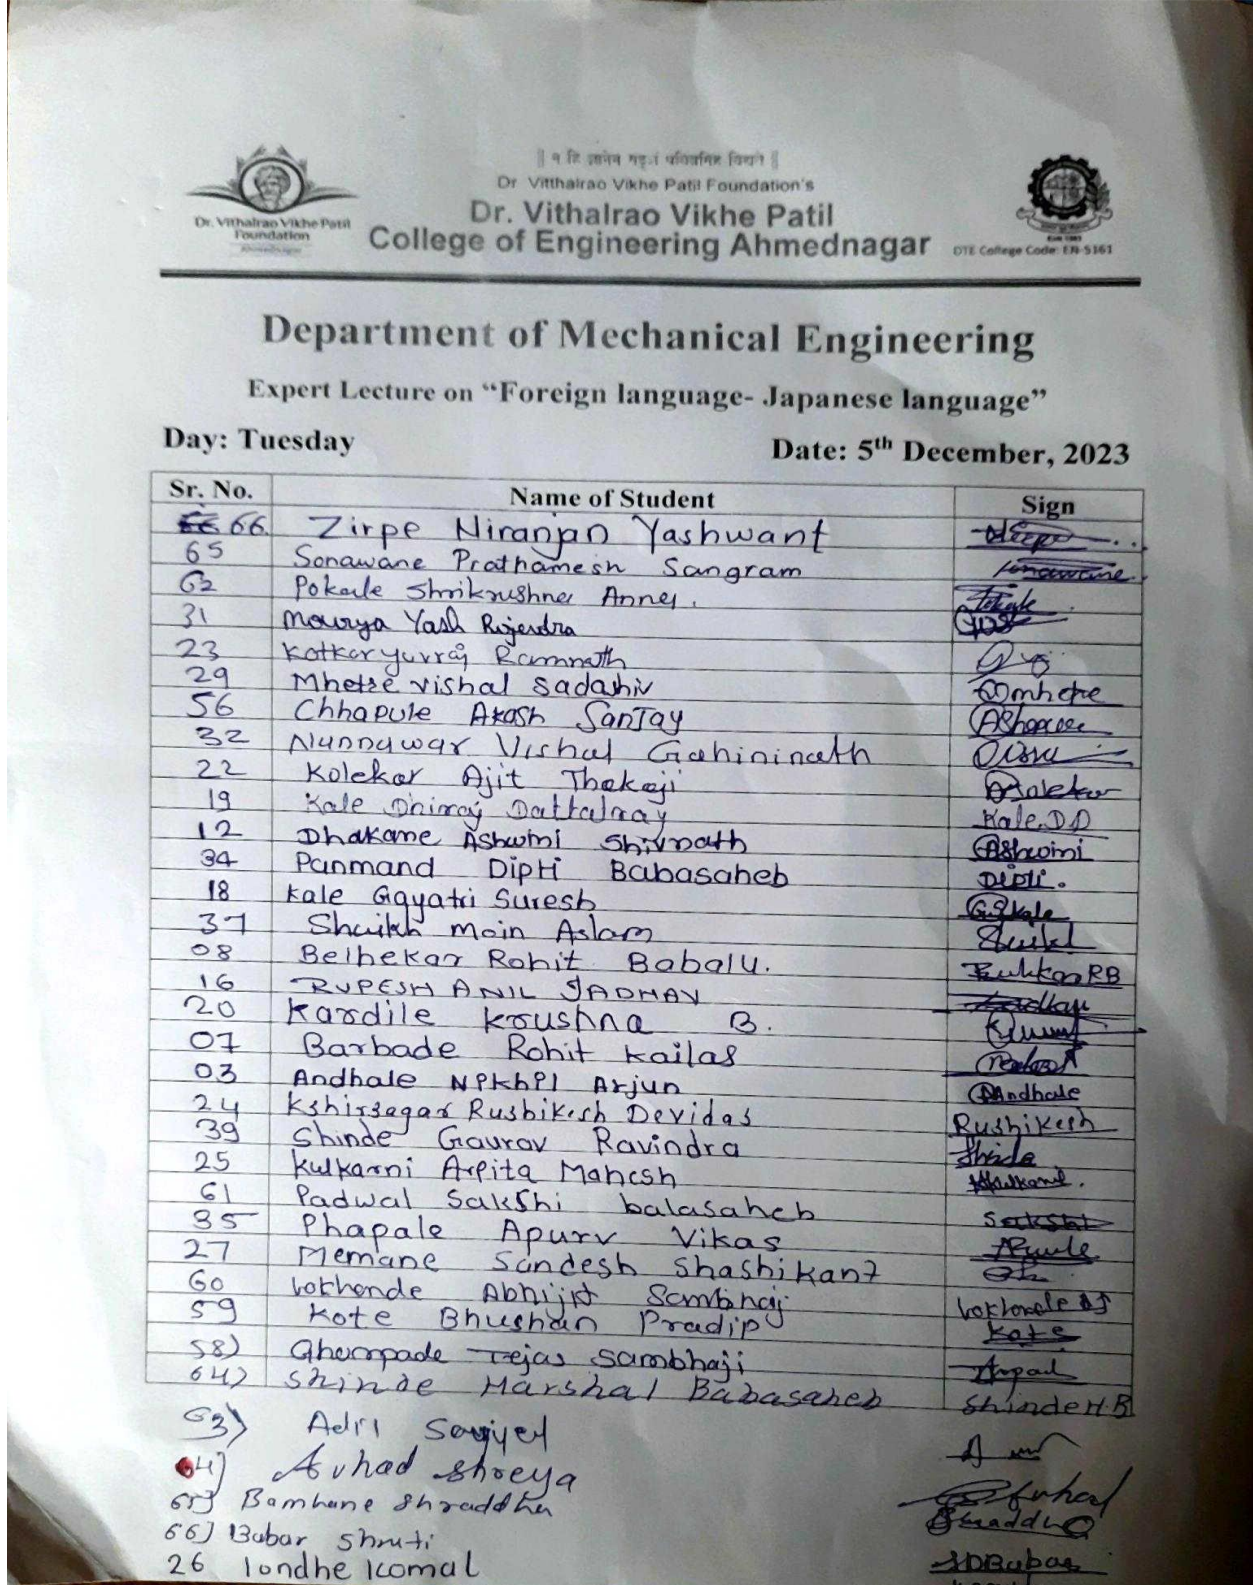 || न हि ज्ञानेन सदृशं पवित्रमिह विद्यते ||
Dr Vitthalrao Vikhe Patil Foundation's
Dr. Vithalrao Vikhe Patil
College of Engineering Ahmednagar
Dr. Vithalrao Vikhe Patil
Foundation
DTE College Code: EN-5161
Department of Mechanical Engineering
Expert Lecture on "Foreign language- Japanese language"
Day: Tuesday Date: 5th December, 2023
Sr. No. Name of Student Sign
66 Zirpe Niranjan Yashwant
65 Sonawane Prathamesh Sangram
62 Pokale Shrikrushna Anna.
31 Mourya Yash Rajendra
23 Katkar yuvraj Ramnath
29 Mhetre vishal Sadashiv
56 Chhapule Akash Sanjay
32 Nannawar Vishal Gahininath
22 Kolekar Ajit Thakaji
19 Kale Dhiraj Dattatray Kale.DD
12 Dhakane Ashwini Shivnath Ashwini
34 Panmand Dipti Babasaheb Dipti.
18 Kale Gayatri Suresh G.S kale
37 Shaikh moin Aslam
08 Belhekar Rohit Babalu. RB
16 RUPESH ANIL JADHAV
20 Kardile Krushna B.
07 Barbade Rohit Kailas
03 Andhale Arjun Andhale
24 Kshirsagar Rushikesh Devidas Rushikesh
39 Shinde Gaurav Ravindra Shinde
25 Kulkarni Arpita Mahesh
61 Padwal Sakshi balasaheb Sakshi
35 Phapale Apurv Vikas
27 Memane Sandesh Shashikant
60 Lokhande Abhijit Sambhaj
59 Kote Bhushan Pradip Kote
58) Ghorpade Tejas Sambhaji
64) Shinde Harshal Babasaheb Shinde H.B
63) Adil Sayyed
64) Avhad Shreya
65) Bamhane Shraddha
66) Babar Shruti SDBabar
26 londhe Komal